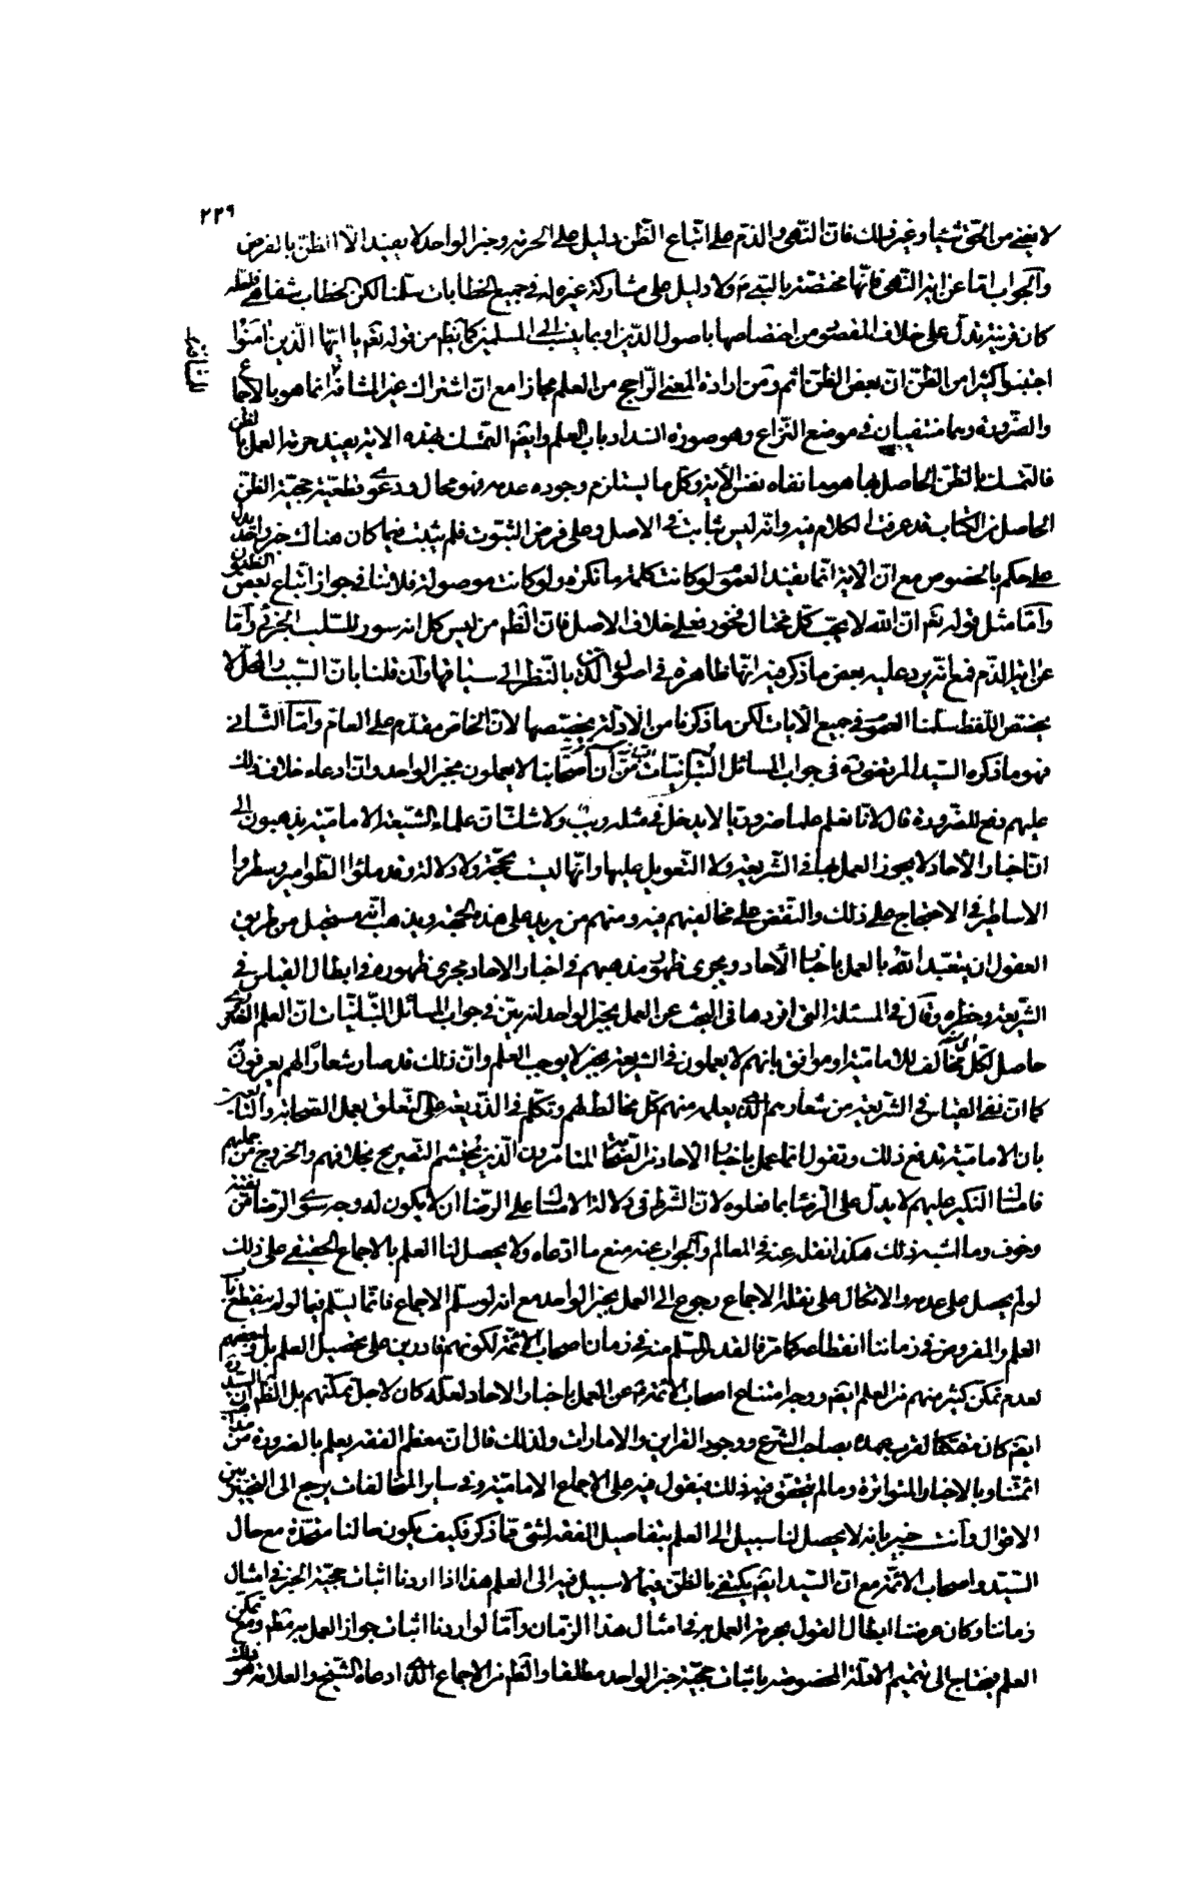 ٢٢٩
لا يغني من الحق شيئا وغير ذلك فان النهى والذم على اتباع الظن دليل على الحرمة وخبر الواحد لا يفيد الا الظن بالفرض
والجواب اما عن اية النهى فانها مختصة بالنبى ص ولا دليل على مشاركة غيره له فى جميع الخطابات سلمنا لكن الخطاب شفاهى ولعله
كان قرينة تدل على خلاف المقصود من اختصاصها باصول الدين او بما ينسب الى المسلمين كما يظهر من قوله تعم يا ايها الذين امنوا
اجتنبوا كثيرا من الظن ان بعض الظن اثم ومن ارادة المعنى الراجح من العلم مجازا مع ان اشتراك غير المشافه انما هو بالاجماع
والضرورة وهما منتفيان فى موضع النزاع وهو صورة انسداد باب العلم وايضا التمسك بهذه الاية يفيد حرمة العمل بالظن
فالتمسك بالظن الحاصل بها هو مما نفاه نفس الاية وكل ما يستلزم وجوده عدمه فهو محال ودعوى قطعية حجية الظن
الحاصل من الكتاب قد عرفت الكلام فيه وانه ليس بثابت فى الاصل وعلى فرض الثبوت فلم يثبت فيما كان هناك خبر واحد يدل
على حكم بالخصوص مع ان الاية انما يفيد العموم لو كانت كلمة ما نكرة ولو كانت موصولة فلا تنافى جواز اتباع بعض الظنون
واما مثل قوله تعم ان الله لا يحب كل مختال فخور فعلى خلاف الاصل فان الظم من ليس كل انه سور للسلب الجزئى واما
عن اية الذم فمع انه يرد عليه بعض ما ذكر فيه انها ظاهرة فى اصول الدين بالنظر الى سياقها وان قلنا بان السبب والمحل لا
يخصص اللفظ سلمنا العموم فى جميع الايات لكن ما ذكرنا من الادلة يخصصها لان الخاص مقدم على العام واما الثانى
فهو ما ذكره السيد المرتضى ره فى جواب المسائل التبانيات من ان اصحابنا لا يعملون بخبر الواحد وان ادعاء خلاف ذلك
عليهم دفع للضرورة قال لانا نعلم علما ضروريا لا يدخل فى مثله ريب ولا شك ان علماء الشيعة الامامية يذهبون الى
ان اخبار الاحاد لا يجوز العمل بها فى الشريعة ولا التعويل عليها وانها ليست بحجة ولا دلالة وقد ملئوا الطوامير وسطروا
الاساطير فى الاحتجاج على ذلك والنقض على مخالفيهم فيه ومنهم من يزيد على هذه الجملة ويذهب الى انه مستحيل من طريق
العقول ان يتعبد الله بالعمل باخبار الاحاد ويجرى ظهور مذهبهم فى اخبار الاحاد مجرى ظهوره فى ابطال القياس فى
الشريعة وحظره وقال فى المسئلة التى افردها فى البحث عن العمل بخبر الواحد انه بين فى جواب المسائل التبانيات ان العلم الضرورى
حاصل لكل مخالف للامامية او موافق بانهم لا يعملون فى الشريعة بخبر لا يوجب العلم وان ذلك قد صار شعارا لهم يعرفون به
كما ان نفى القياس فى الشريعة من شعارهم الذى يعلمه منهم كل مخالط لهم وتكلم فى الذريعة على التعلق بعمل الصحابة والتابعين
بان الامامية تدفع ذلك وتقول انما عمل باخبار الاحاد من الصحابة المتامرون الذين يحتشم التصريح بخلافهم والخروج عن جملتهم
فامساك النكير عليهم لا يدل على الرضا بما فعلوه لان الشرط فى دلالة الامساك على الرضا ان لا يكون له وجه سوى الرضا من تقية
وخوف وما اشبه ذلك هكذا نقل عنه فى المعالم والجواب عنه منع ما ادعاه ولا يحصل لنا العلم بالاجماع الحقيقى على ذلك
لو لم يحصل على عدمه والاتكال على نقله الاجماع رجوع الى العمل بخبر الواحد مع انه لو سلم الاجماع فانما يسلم فيما لو لم ينقطع باب
العلم والمفروض فى زماننا انقطاعه كما مر فالقدر المسلم منه فى زمان اصحاب الائمة لكونهم قادرين على تحصيل العلم بل وبعضهم
لعدم تمكن كثير منهم من العلم ايضا ووجه امتناع اصحاب الائمة ع عن العمل باخبار الاحاد لعله كان لاجل تمكنهم بل الظم ان السيد ره
ايضا كان متمكنا لقرب عهده بصاحب الشرع ووجود القراين والامارات ولذلك قال ان معظم الفقه يعلم بالضرورة من مذاهب
ائمتنا وبالاخبار المتواترة وما لم يتحقق فيه ذلك فيعول فيه على الاجماع الامامية وفى ساير المخالفات يرجع الى التخيير بين
الاقوال وانت خبير بانه لا يحصل لنا سبيل الى العلم بتفاصيل الفقه لشئ مما ذكر فكيف يكون حالنا متحدة مع حال
السيد واصحاب الائمة مع ان السيد ايضا يكتفى بالظن فيما لا سبيل فيه الى العلم هذا اذا اردنا اثبات حجية الخبر فى امثال
زماننا وكان غرضنا ابطال القول بحرمة العمل به فى امثال هذا الزمان واما لو اردنا اثبات جواز العمل به مطم ومع تمكن
العلم فيحتاج الى تتميم الادلة المخصوصة باثبات حجية خبر الواحد مطلقا والظم من الاجماع الذى ادعاه الشيخ والعلامة هو ذلك